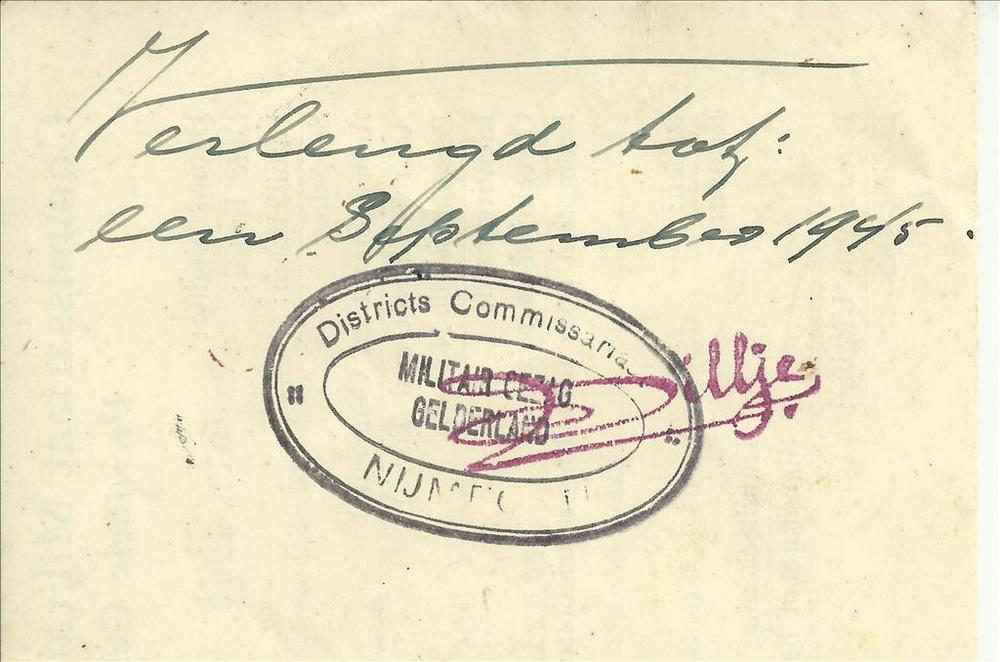 Verlengd tot:
een September 1945.
Districts Commissariaat
MILITAIR GEZAG
GELDERLAND
NIJMEGEN